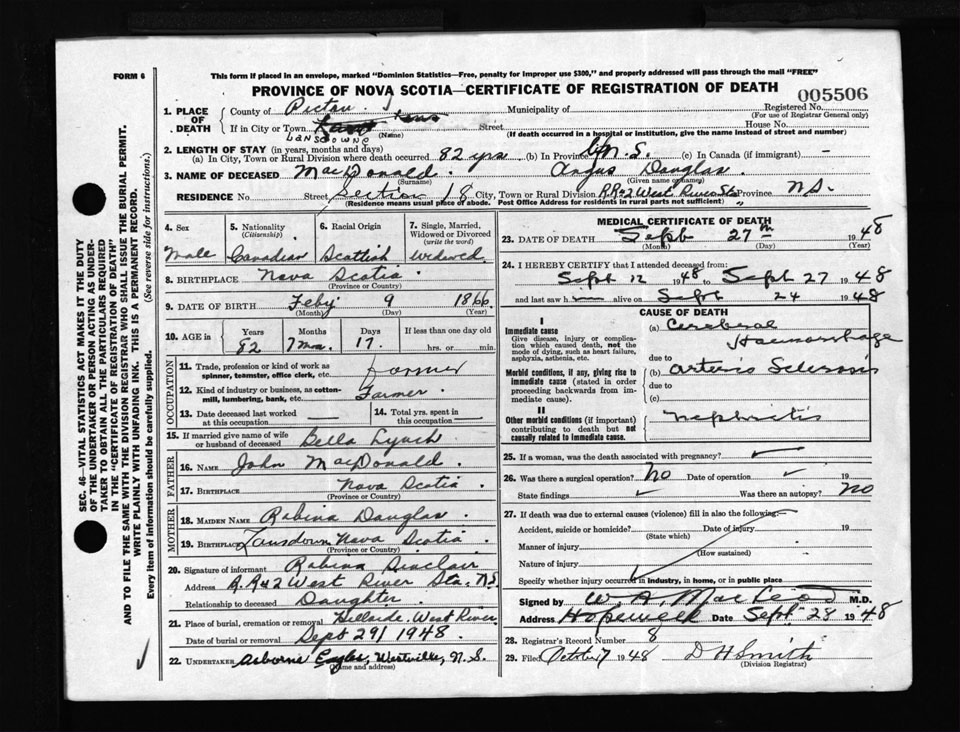 FORM 6
This form if placed in an envelope, marked "Dominion Statistics—Free, penalty for improper use $300," and properly addressed will pass through the mail "FREE"
PROVINCE OF NOVA SCOTIA—CERTIFICATE OF REGISTRATION OF DEATH
005506
1. PLACE OF DEATH
County of Pictou Municipality of Registered No.
(For use of Registrar General only)
If in City or Town Street House No.
LANSDOWNE (Name) (If death occurred in a hospital or institution, give the name instead of street and number)
2. LENGTH OF STAY (in years, months and days)
(a) In City, Town or Rural Division where death occurred 82 yrs (b) In Province N.S. (c) In Canada (if immigrant) —
3. NAME OF DECEASED MacDonald Angus Douglas
(Surname) (Given name or names)
RESIDENCE No Street Section 18 City, Town or Rural Division RR#2 West River Sta Province N.S.
(Residence means usual place of abode. Post Office Address for residents in rural parts not sufficient)
4. Sex
Male
5. Nationality
(Citizenship)
Canadian
6. Racial Origin
Scottish
7. Single, Married, Widowed or Divorced
(write the word)
Widowed
8. BIRTHPLACE Nova Scotia
(Province or Country)
9. DATE OF BIRTH Feby 9 1866
(Month) (Day) (Year)
10. AGE in Years Months Days If less than one day old
82 7 mos. 17. hrs. or min.
OCCUPATION
11. Trade, profession or kind of work as spinner, teamster, office clerk, etc. Farmer
12. Kind of industry or business, as cotton-mill, lumbering, bank, etc. Farmer
13. Date deceased last worked at this occupation
14. Total yrs. spent in this occupation
15. If married give name of wife or husband of deceased Bella Lynch
FATHER
16. NAME John MacDonald
17. BIRTHPLACE Nova Scotia
(Province or Country)
MOTHER
18. MAIDEN NAME Robina Douglas
19. BIRTHPLACE Lansdown Nova Scotia
(Province or Country)
20. Signature of informant Robina Sinclair
Address R.R#2 West River Sta. N.S.
Relationship to deceased Daughter
21. Place of burial, cremation or removal Hillside, West River
Date of burial or removal Sept 29/1948.
22. UNDERTAKER Osborne Eagles, Westville, N.S.
(Name and address)
MEDICAL CERTIFICATE OF DEATH
23. DATE OF DEATH Sept 27th 1948
(Month) (Day) (Year)
24. I HEREBY CERTIFY that I attended deceased from:
Sept 12 1948 to Sept 27 1948
and last saw h alive on Sept 24 1948
CAUSE OF DEATH
I
Immediate cause
Give disease, injury or complication which caused death, not the mode of dying, such as heart failure, asphyxia, asthenia, etc.
(a) Cerebral Haemorrhage
due to
Morbid conditions, if any, giving rise to immediate cause (stated in order proceeding backwards from immediate cause).
(b) Arterio Sclerosis
due to
(c)
II
Other morbid conditions (if important) contributing to death but not causally related to immediate cause.
Nephritis
25. If a woman, was the death associated with pregnancy?
26. Was there a surgical operation? No Date of operation 19
State findings Was there an autopsy? NO
27. If death was due to external causes (violence) fill in also the following:—
Accident, suicide or homicide? Date of injury 19
(State which)
Manner of injury
(How sustained)
Nature of injury
Specify whether injury occurred in industry, in home, or in public place
Signed by W A. MacLeod M.D.
Address Hopewell Date Sept. 28 1948
28. Registrar's Record Number 8
29. Filed October 7 1948 D H Smith
(Division Registrar)
SEC. 46—VITAL STATISTICS ACT MAKES IT THE DUTY
OF THE UNDERTAKER OR PERSON ACTING AS UNDER-
TAKER TO OBTAIN ALL THE PARTICULARS REQUIRED
IN THE "CERTIFICATE OF REGISTRATION OF DEATH"
AND TO FILE THE SAME WITH THE DIVISION REGISTRAR WHO SHALL ISSUE THE BURIAL PERMIT.
WRITE PLAINLY WITH UNFADING INK. THIS IS A PERMANENT RECORD.
Every item of information should be carefully supplied. (See reverse side for instructions.)